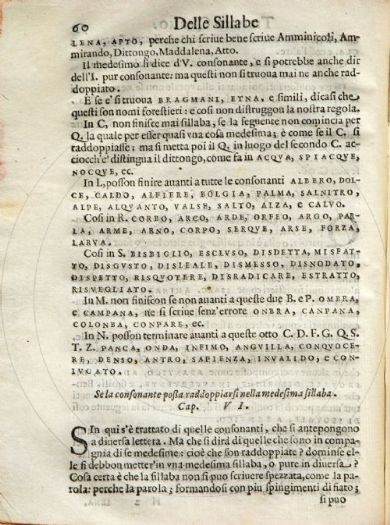 60 Delle Sillabe
LENA, APTO, perche chi scriue bene scriue Amminicoli, Am-
mirando, Dittongo, Maddalena, Atto.
Il medesimo si dice d'V. consonante, e si potrebbe anche dir
dell'I. pur consonante: ma questi non si truoua mai ne anche rad-
doppiato.
E se e' si truoua BRAGMANI, ETNA, e simili, dicasi che
questi son nomi forestieri: e cosi non distruggon la nostra regola.
In C, non finisce mai sillaba, se la seguente non comincia per
Q. la quale per esser quasi vna cosa medesima; è come se il C. si
raddoppiasse: ma si metta poi il Q. in luogo del secondo C. ac-
ciocch'e' distingua il dittongo, come fa in ACQVA, SPIACQVE,
NOCQVE, ec.
In L, posson finire auanti a tutte le consonanti ALBERO, DOL-
CE, CALDO, ALFIERE, BOLGIA, PALMA, SALNITRO,
ALPE, ALQVANTO, VALSE, SALTO, ALZA, e CALVO.
Cosi in R. CORBO, ARCO, ARDE, ORFEO, ARGO, PAR-
LA, ARME, ARNO, CORPO, SERQVE, ARSE, FORZA,
LARVA.
Cosi in S. BISBIGLIO, ESCLVSO, DISDETTA, MISFAT-
TO, DISGVSTO, DISLEALE, DISMESSO, DISNODATO,
DISPETTO, RISQVOTERE, DISRADICARE, ESTRATTO,
RISVEGLIATO.
In M. non finiscon se non auanti a queste due B. e P. OMBRA,
e CAMPANA, ne si scriue senz'errore ONBRA, CANPANA,
COLONBA, CONPARE, ec.
In N. posson terminare auanti a queste otto C. D. F. G. Q. S.
T. Z. PANCA, ONDA, INFIMO, ANGVILLA, CONQVOCE-
RE, DENSO, ANTRO, SAPIENZA, INVALIDO, e CON-
IVGATO.
Se la consonante possa raddoppiarsi nella medesima sillaba.
Cap. VI.
SIn qui s'è trattato di quelle consonanti, che si antepongono
a diuersa lettera. Ma che si dirà di quelle che sono in compa-
gnia di se medesime: cioè che son raddoppiate? dominse el-
le si debbon metter'in vna medesima sillaba, o pure in diuersa?
Cosa certa è che la sillaba non si puo scriuere spezzata, come la pa-
rola: perche la parola; formandosi con più spingimenti di fiato;
si puo